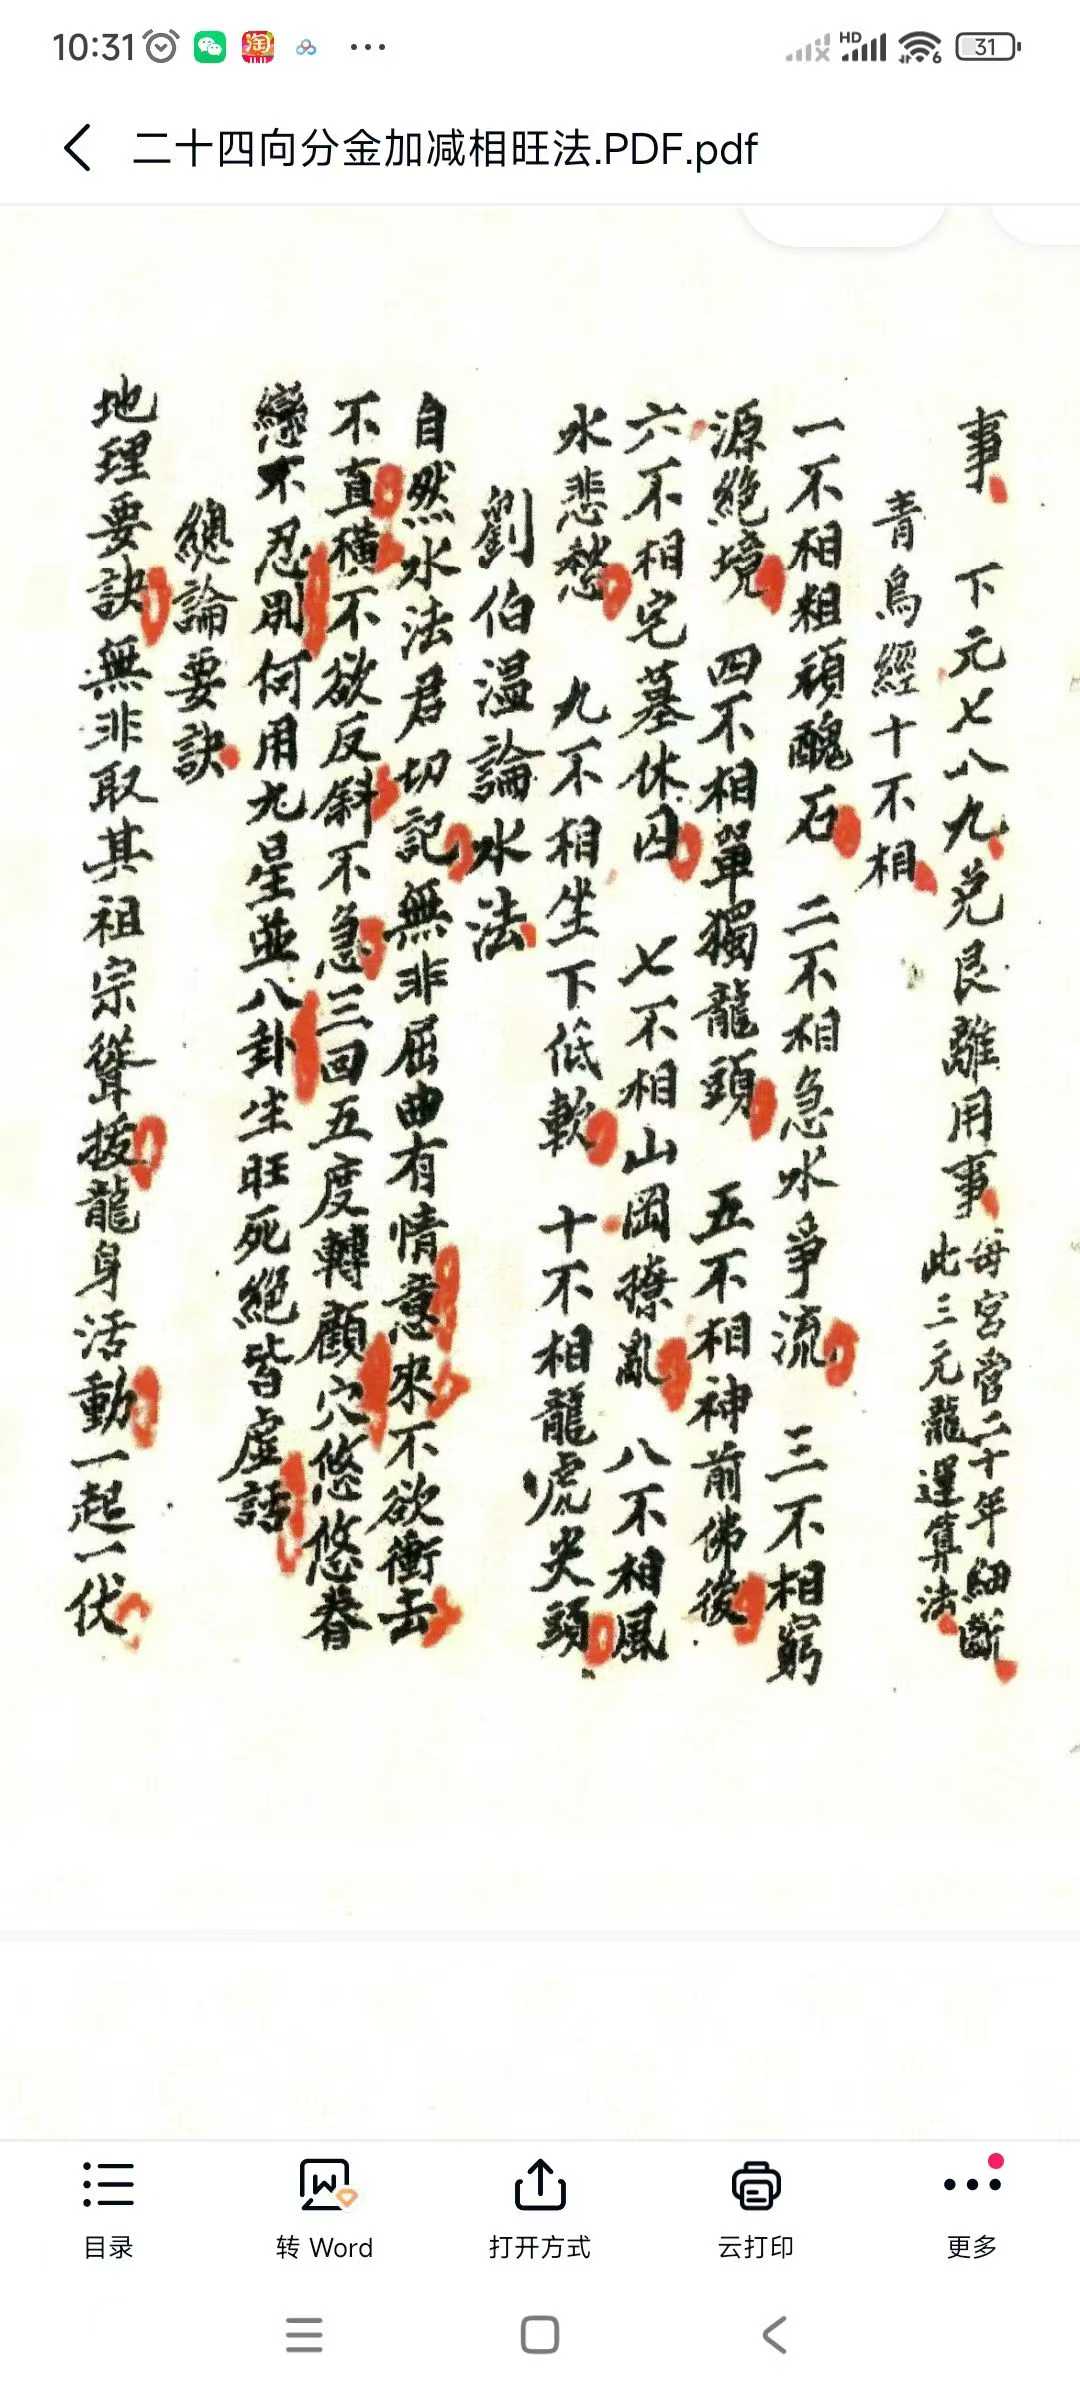 10:31
HD
6
31
二十四向分金加减相旺法.PDF.pdf
事 下元七八九兑艮離用事 每宮當二十年細斷
此三元龍運算法
青烏經十不相
一不相粗頑醜石 二不相急水爭流 三不相窮
源絕境 四不相單獨龍頭 五不相神前佛後
六不相宅墓休囚 七不相山岡撩亂 八不相風
水悲愁 九不相坐下低軟 十不相龍虎尖頭
劉伯溫論水法
自然水法君切記無非屈曲有情意來不欲衝去
不直橫不欲反斜不急三回五度轉顧穴悠悠眷
戀不忍別何用九星並八卦生旺死絕皆虛話
總論要訣
地理要訣無非取其祖宗聳拔龍身活動一起一伏
目录
转 Word
打开方式
云打印
更多